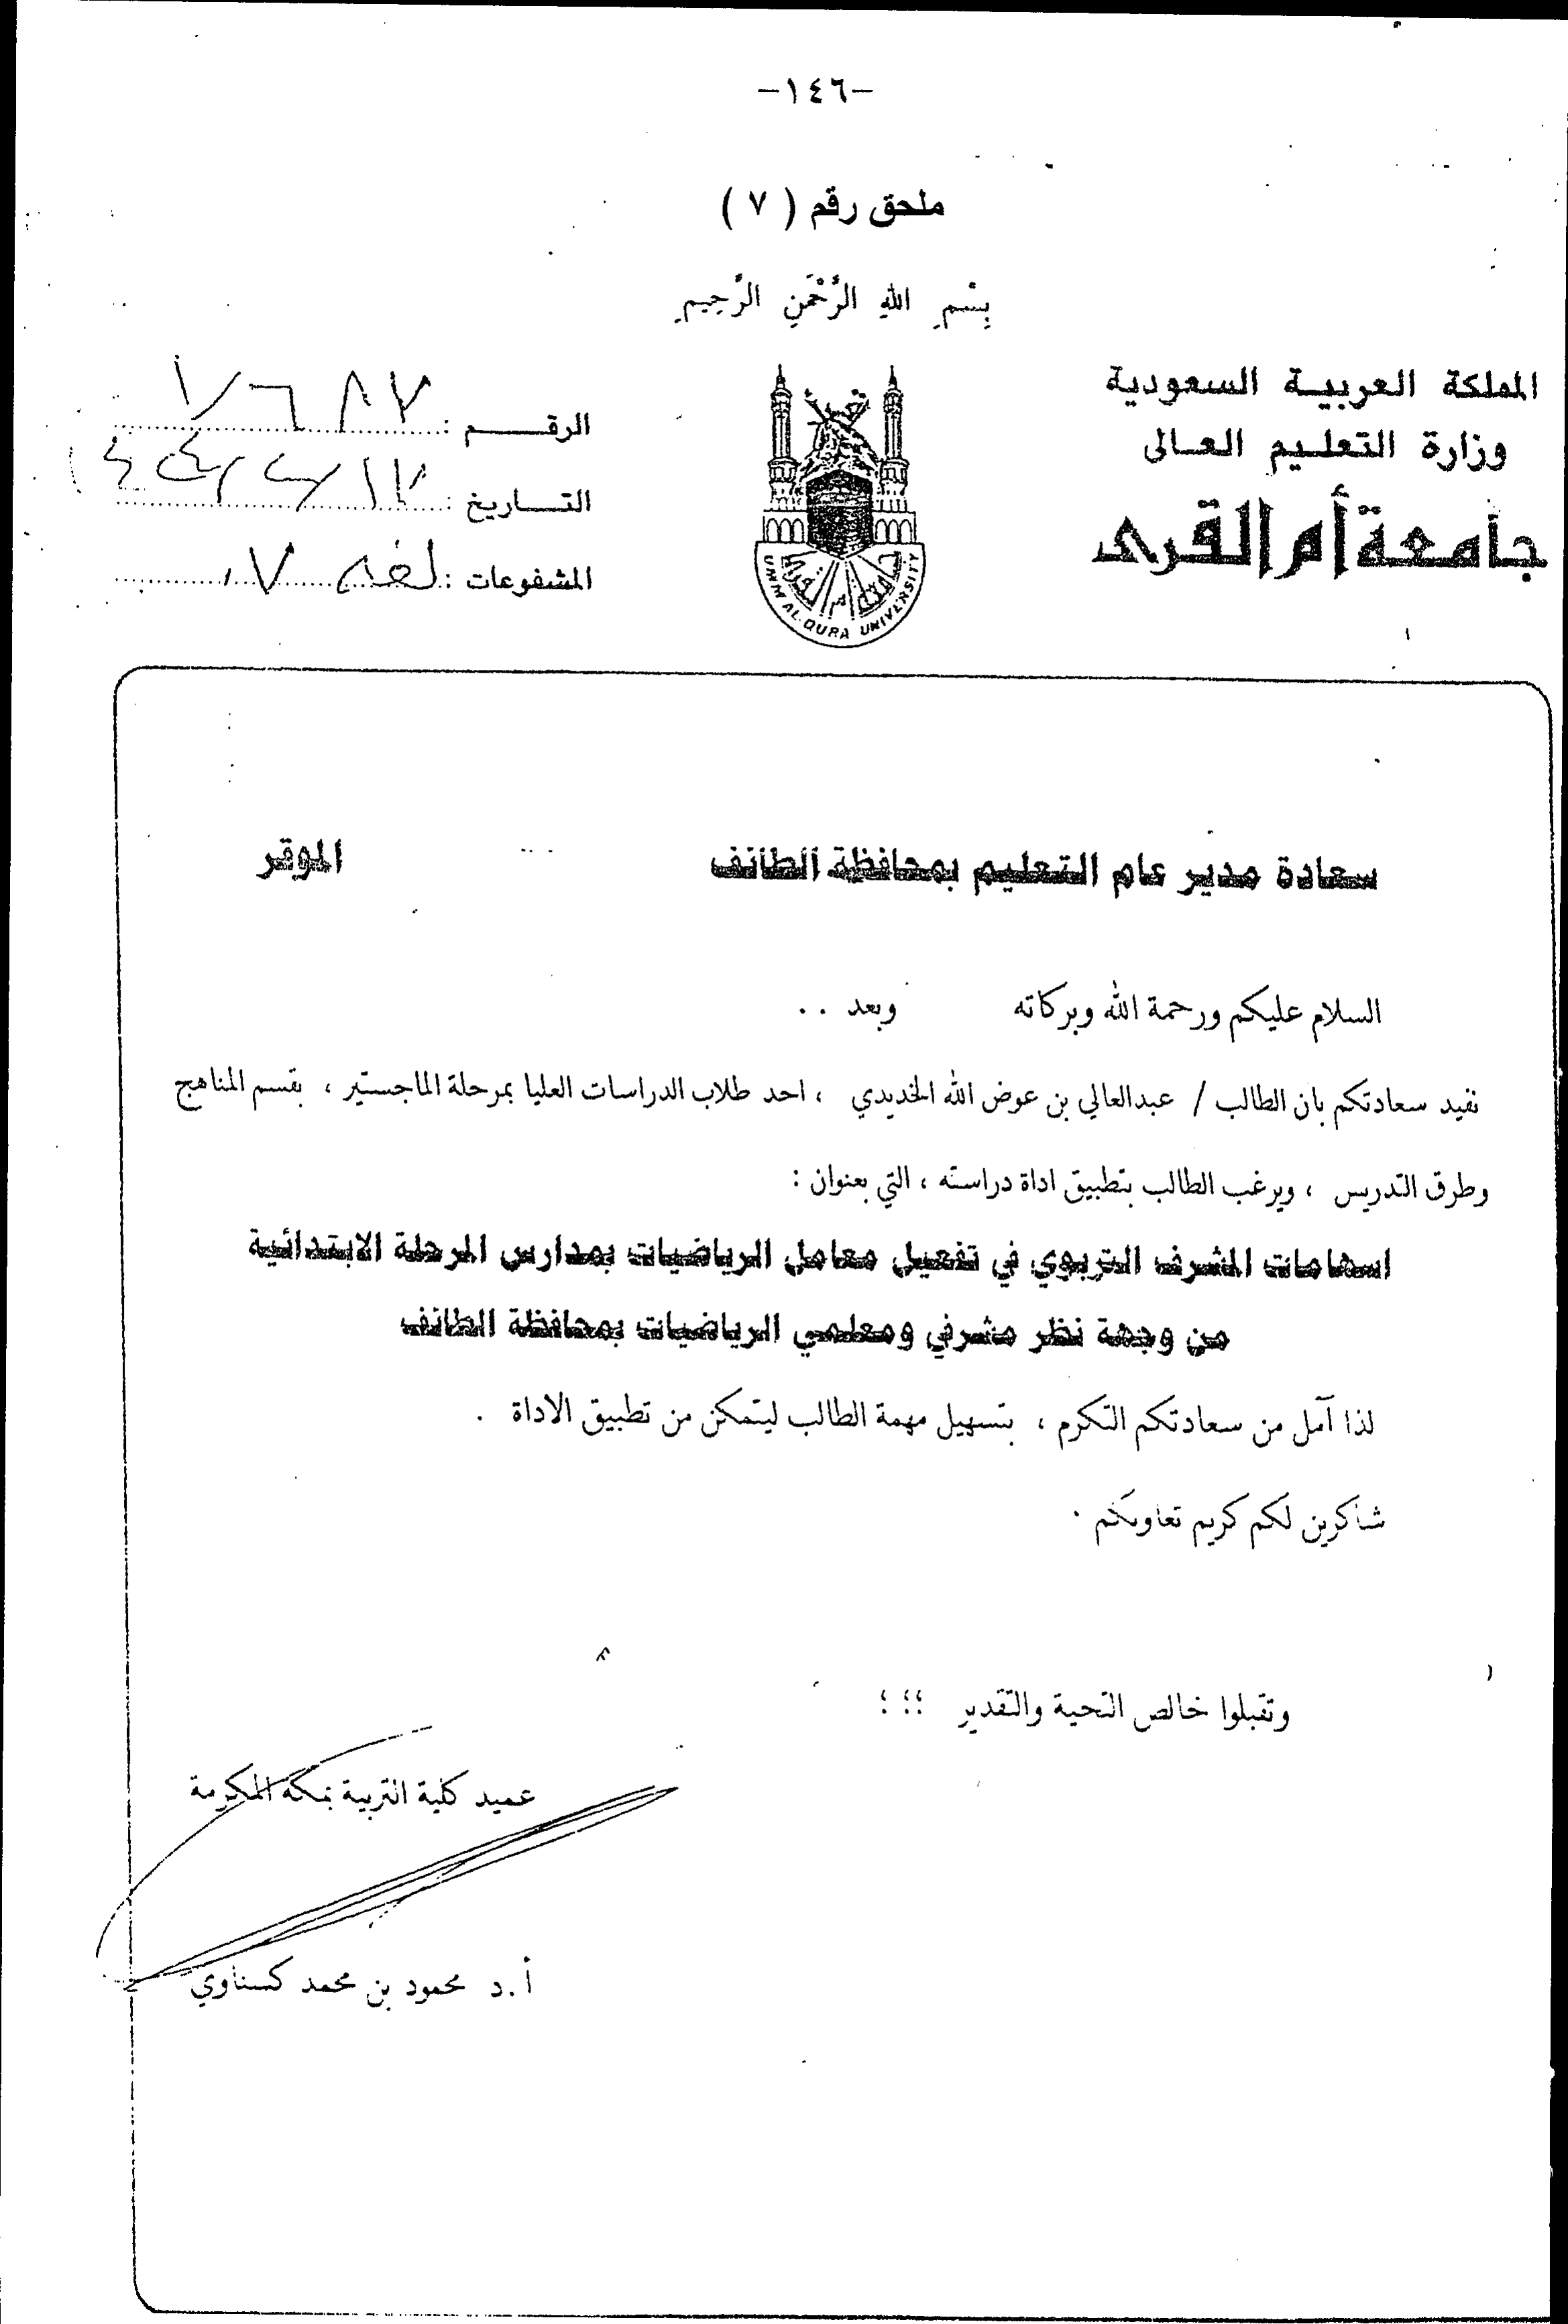 -١٤٦-
ملحق رقم ( ٧ )
بِسْمِ اللهِ الرَّحْمَنِ الرَّحِيمِ
المملكة العربية السعودية
وزارة التعليم العالى
جامعة أم القرى
الرقم :
التاريخ :
المشفوعات :
UMM AL-QURA UNIVERSITY
سعادة مدير عام التعليم بمحافظة الطائف الموقر
السلام عليكم ورحمة الله وبركاته وبعد ..
نفيد سعادتكم بان الطالب / عبدالعالي بن عوض الله الخديدي ، احد طلاب الدراسات العليا بمرحلة الماجستير ، بقسم المناهج
وطرق التدريس ، ويرغب الطالب بتطبيق اداة دراسته ، التي بعنوان :
اسهامات المشرف التربوي في تفعيل معامل الرياضيات بمدارس المرحلة الابتدائية
من وجهة نظر مشرفي ومعلمي الرياضيات بمحافظة الطائف
لذا آمل من سعادتكم التكرم ، بتسهيل مهمة الطالب ليتمكن من تطبيق الاداة .
شاكرين لكم كريم تعاونكم .
وتقبلوا خالص التحية والتقدير ؛؛؛
عميد كلية التربية بمكة المكرمة
أ.د محمود بن محمد كسناوي